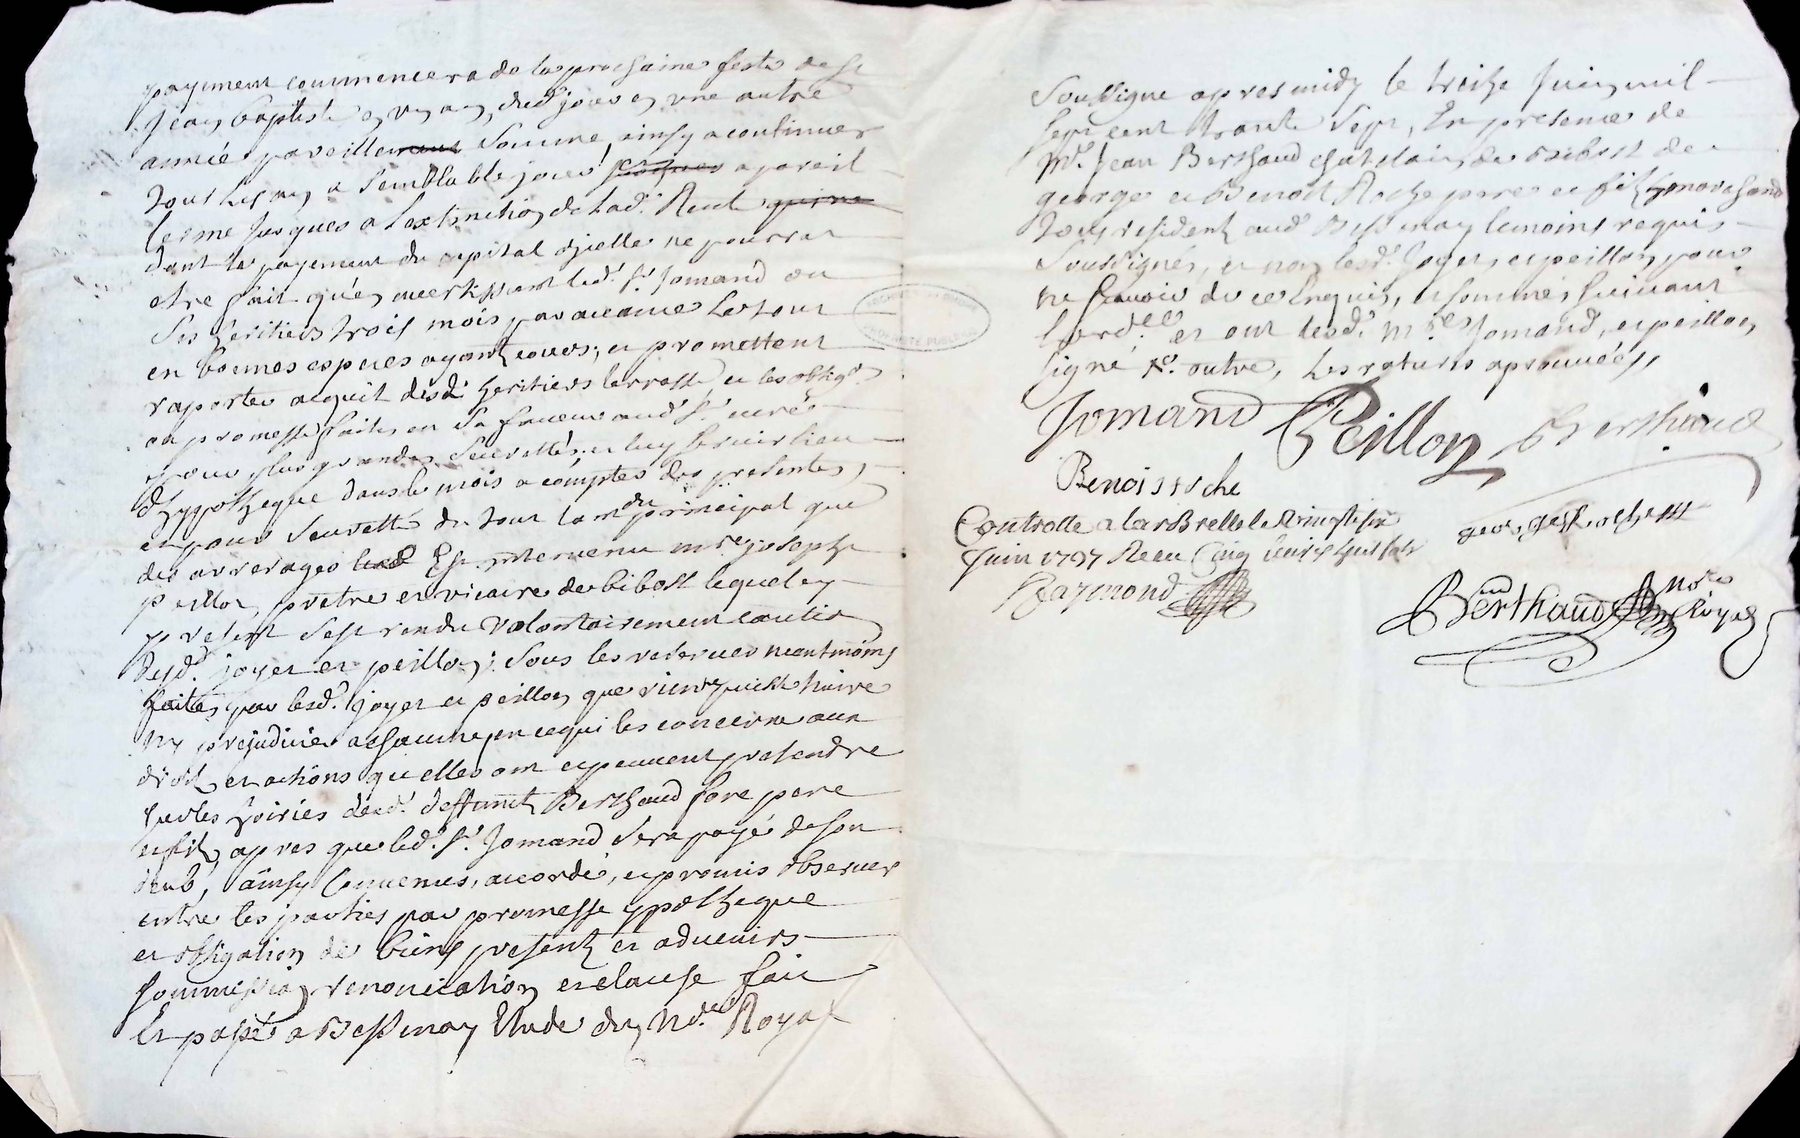 payement commencera de la prochaine feste de St
Jean baptiste en un an, dud. jour en une autre
année pareille somme, ainsy a continuer
tous les ans a semblable jour a pareil
terme jusques a l'extinction de lad. Rente
dont le payement du capital d'jcelle ne pourra
etre fait qu'en avertissant led. Sr. Jomand ou
ses heritiers trois mois par avance le tout
en bonnes especes ayant cours; et promettent
raporter acquit desd. heritiers terrasse, et les oblig.
ou promesse faites en sa faveur aud. Sr. curé
pour plus grandes seurettés, et luy servir lieu
d'hypotheque dans le mois a compter des presentes,
et pour seuretté du tout tant du principal que
des arrerages Est intervenu mre. joseph
peillon, prêtre et vicaire de bibost lequel cy
present s'est rendu volontairement caution
desd. joyet et peillon; sous les reserves neantmoins
faites par lesd. joyet et peillon que rien puisse nuire
ny prejudicier a chacune, en ce qui les concerne aux
droits, et actions qu'elles ont et peuvent pretendre
sur les hoiries desd. deffunts Berthaud fore pere
et fils, apres que led. Sr. Jomand sera payé de son
deub, ainsy convenus, accordé, et promis observer
entre les parties par promesse ypotheque
et obligation de biens presents et advenirs
soumission, renonciation, et clause fait
Et passé a Bessenay Etude du No.re Royal
soussigné apres midy le treize Juin, mil
sept cent trente sept, En presence de
Mr. Jean Berthaud chatelain, de Bibost de
george et Benoist Roche pere et fils, marchands
tous residents aud. Bessenay temoins requis
soussignés, et non lesd. Joyet, et peillon, pour
ne sçavoir de ce Enquis, et sommés suivant
l'ord.ce et ont lesd. mres. Jomand, et peillon,
signé outre, les ratures aprouvées,
Jomand Peillon Berthaud
Benoist roche
Controllé a larBrelle le vingt six
george roche
Juin 1737 Receu Cinq livres huit sols
Raymond
Berthaud Nore Royal